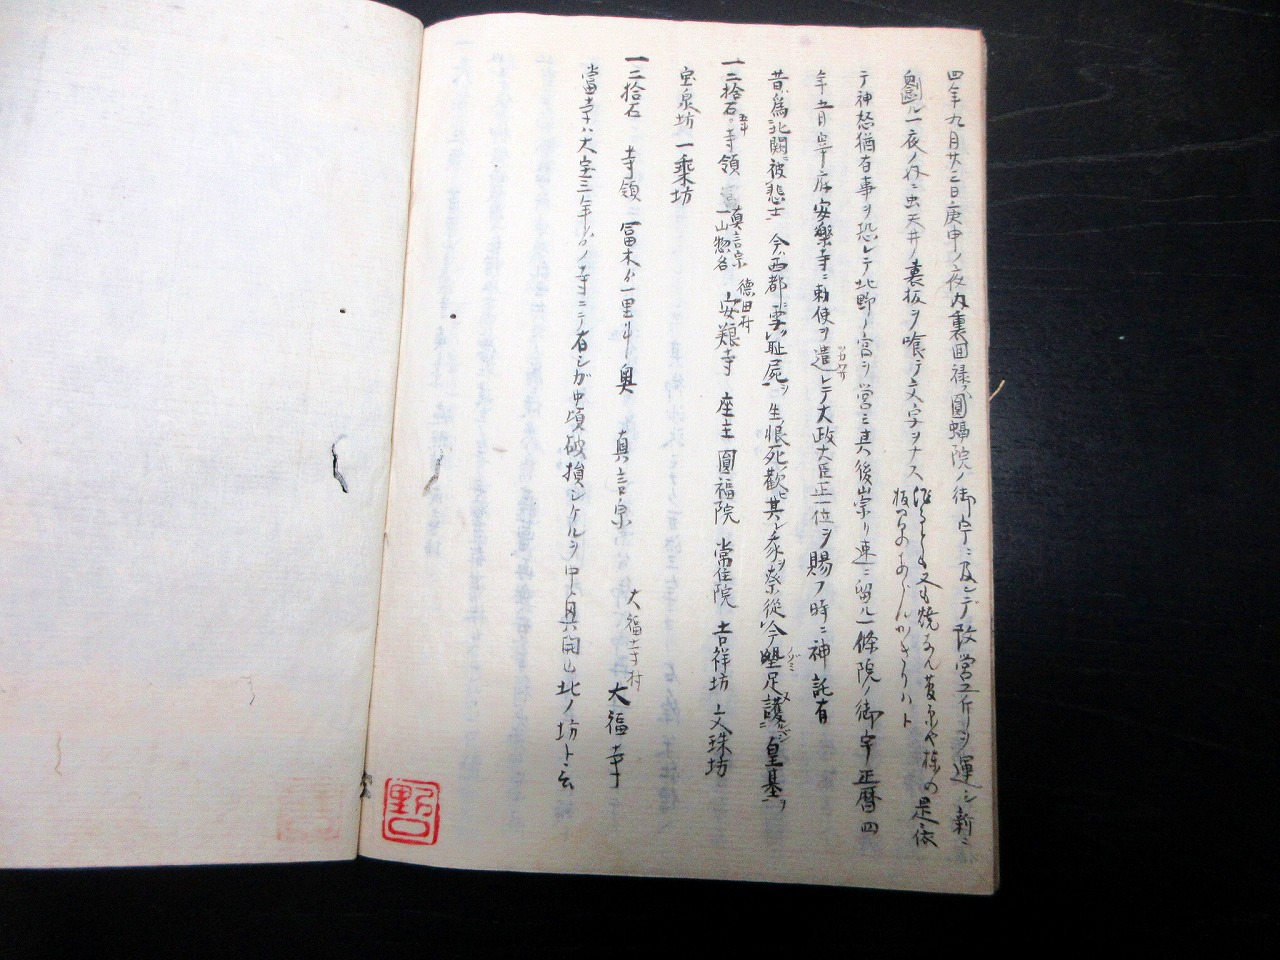 四年九月廿三日庚申ノ夜内裏回禄ス圓蝠院ノ御宇ニ及ンデ改営工斤ヲ運シ新ニ
画ル一夜ノ内ニ虫天井ノ裏板ヲ喰テ文字ヲナス
造るとも又も焼なん菅原や棟の
板間のあハんかきりハト
是依
テ神怒猶有事ヲ恐レテ北野ノ宮ヲ営ミ其後崇リ速ニ留ル一條院ノ御宇正暦四
年五月宰府安楽寺ニ勅使ヲ遣レテ大政大臣正一位ヲ賜フ時ニ神託有
ツカワサ
昔為北闕被悲士今西都雪恥屍生恨死歓其我奈従今望足護皇基
ノゾミ
一二拾石五斗寺領
真言宗
一山惣名
徳田村
安穏寺 座主圓福院 常住院 吉祥坊 文珠坊
宝泉坊 一乗坊
一三拾石 寺領 冨木ゟ一里斗奥 真言宗
大福寺村
大福寺
當寺ハ大宝三年ゟノ寺ニテ有シガ中頃破損シケルヲ中興開山北ノ坊ト云
野口